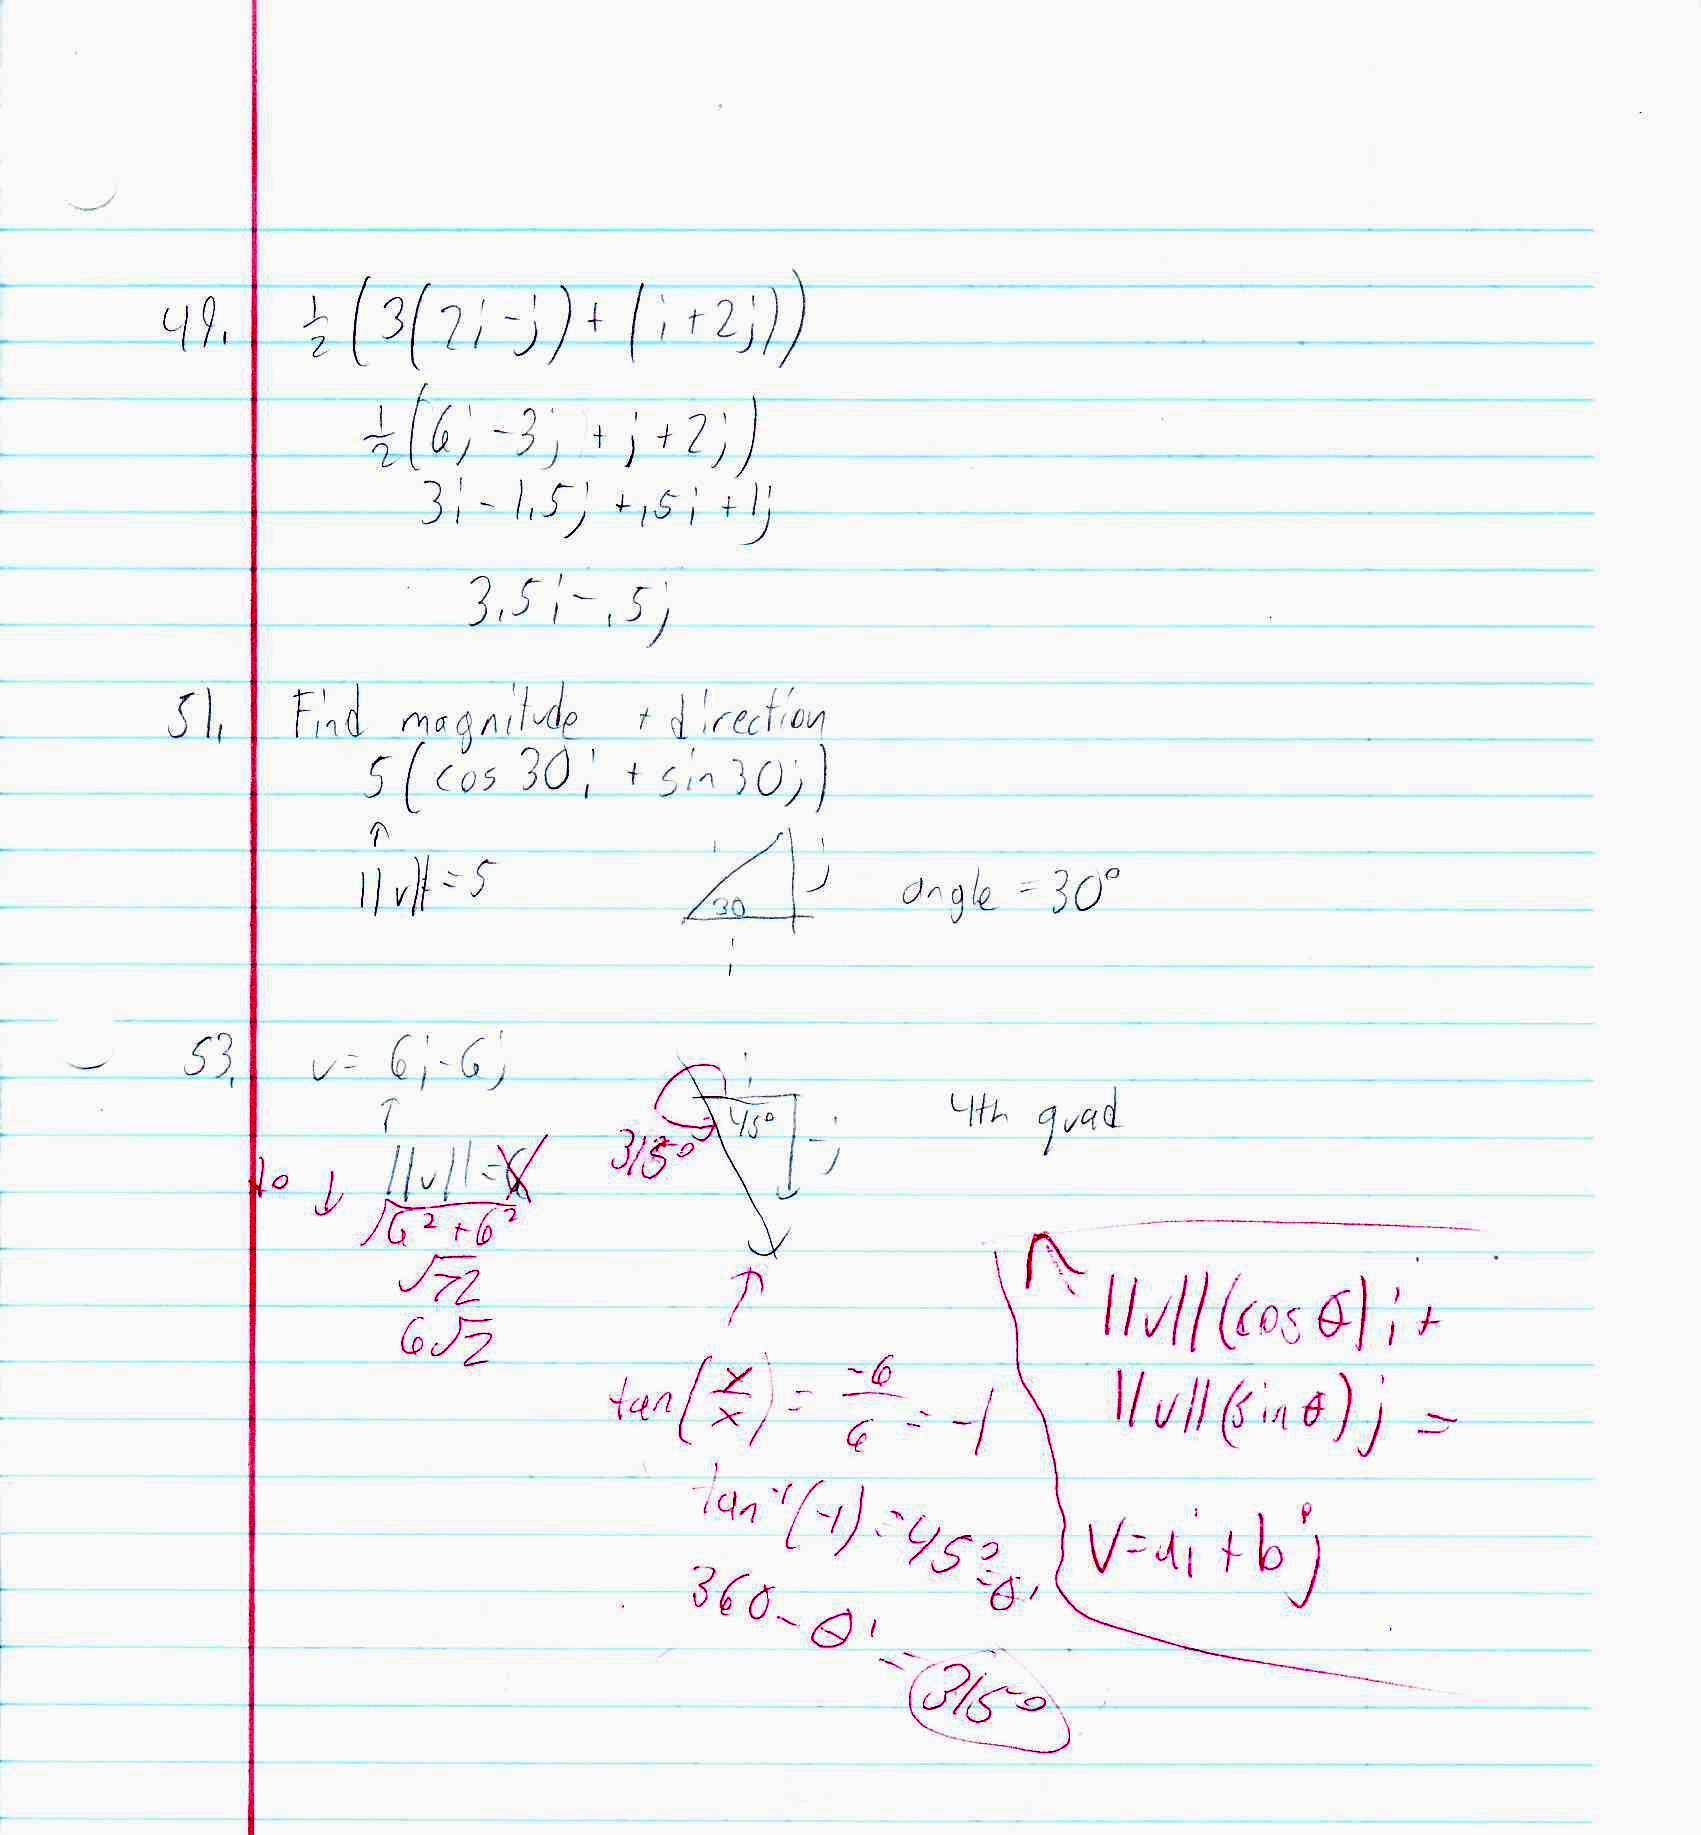 49. ½(3(2i-j)+(i+2j))
½(6i-3j+i+2j)
3i-1.5j+.5i+1j
3.5i-.5j
51. Find magnitude + direction
5(cos30i + sin30j)
↑
||v||=5
i
j
30
i
angle=30°
53. v= 6i-6j
↑
i
45°
-j
315°
4th quad
↓ ||v||=6
√6²+6²
√72
6√2
↑
tan(y/x)= -6/6 = -1
tan⁻¹(-1)=45°=θ'
360-θ'
=315°
||v||(cosθ)i+
||v||(sinθ)j=
V=ai+bj